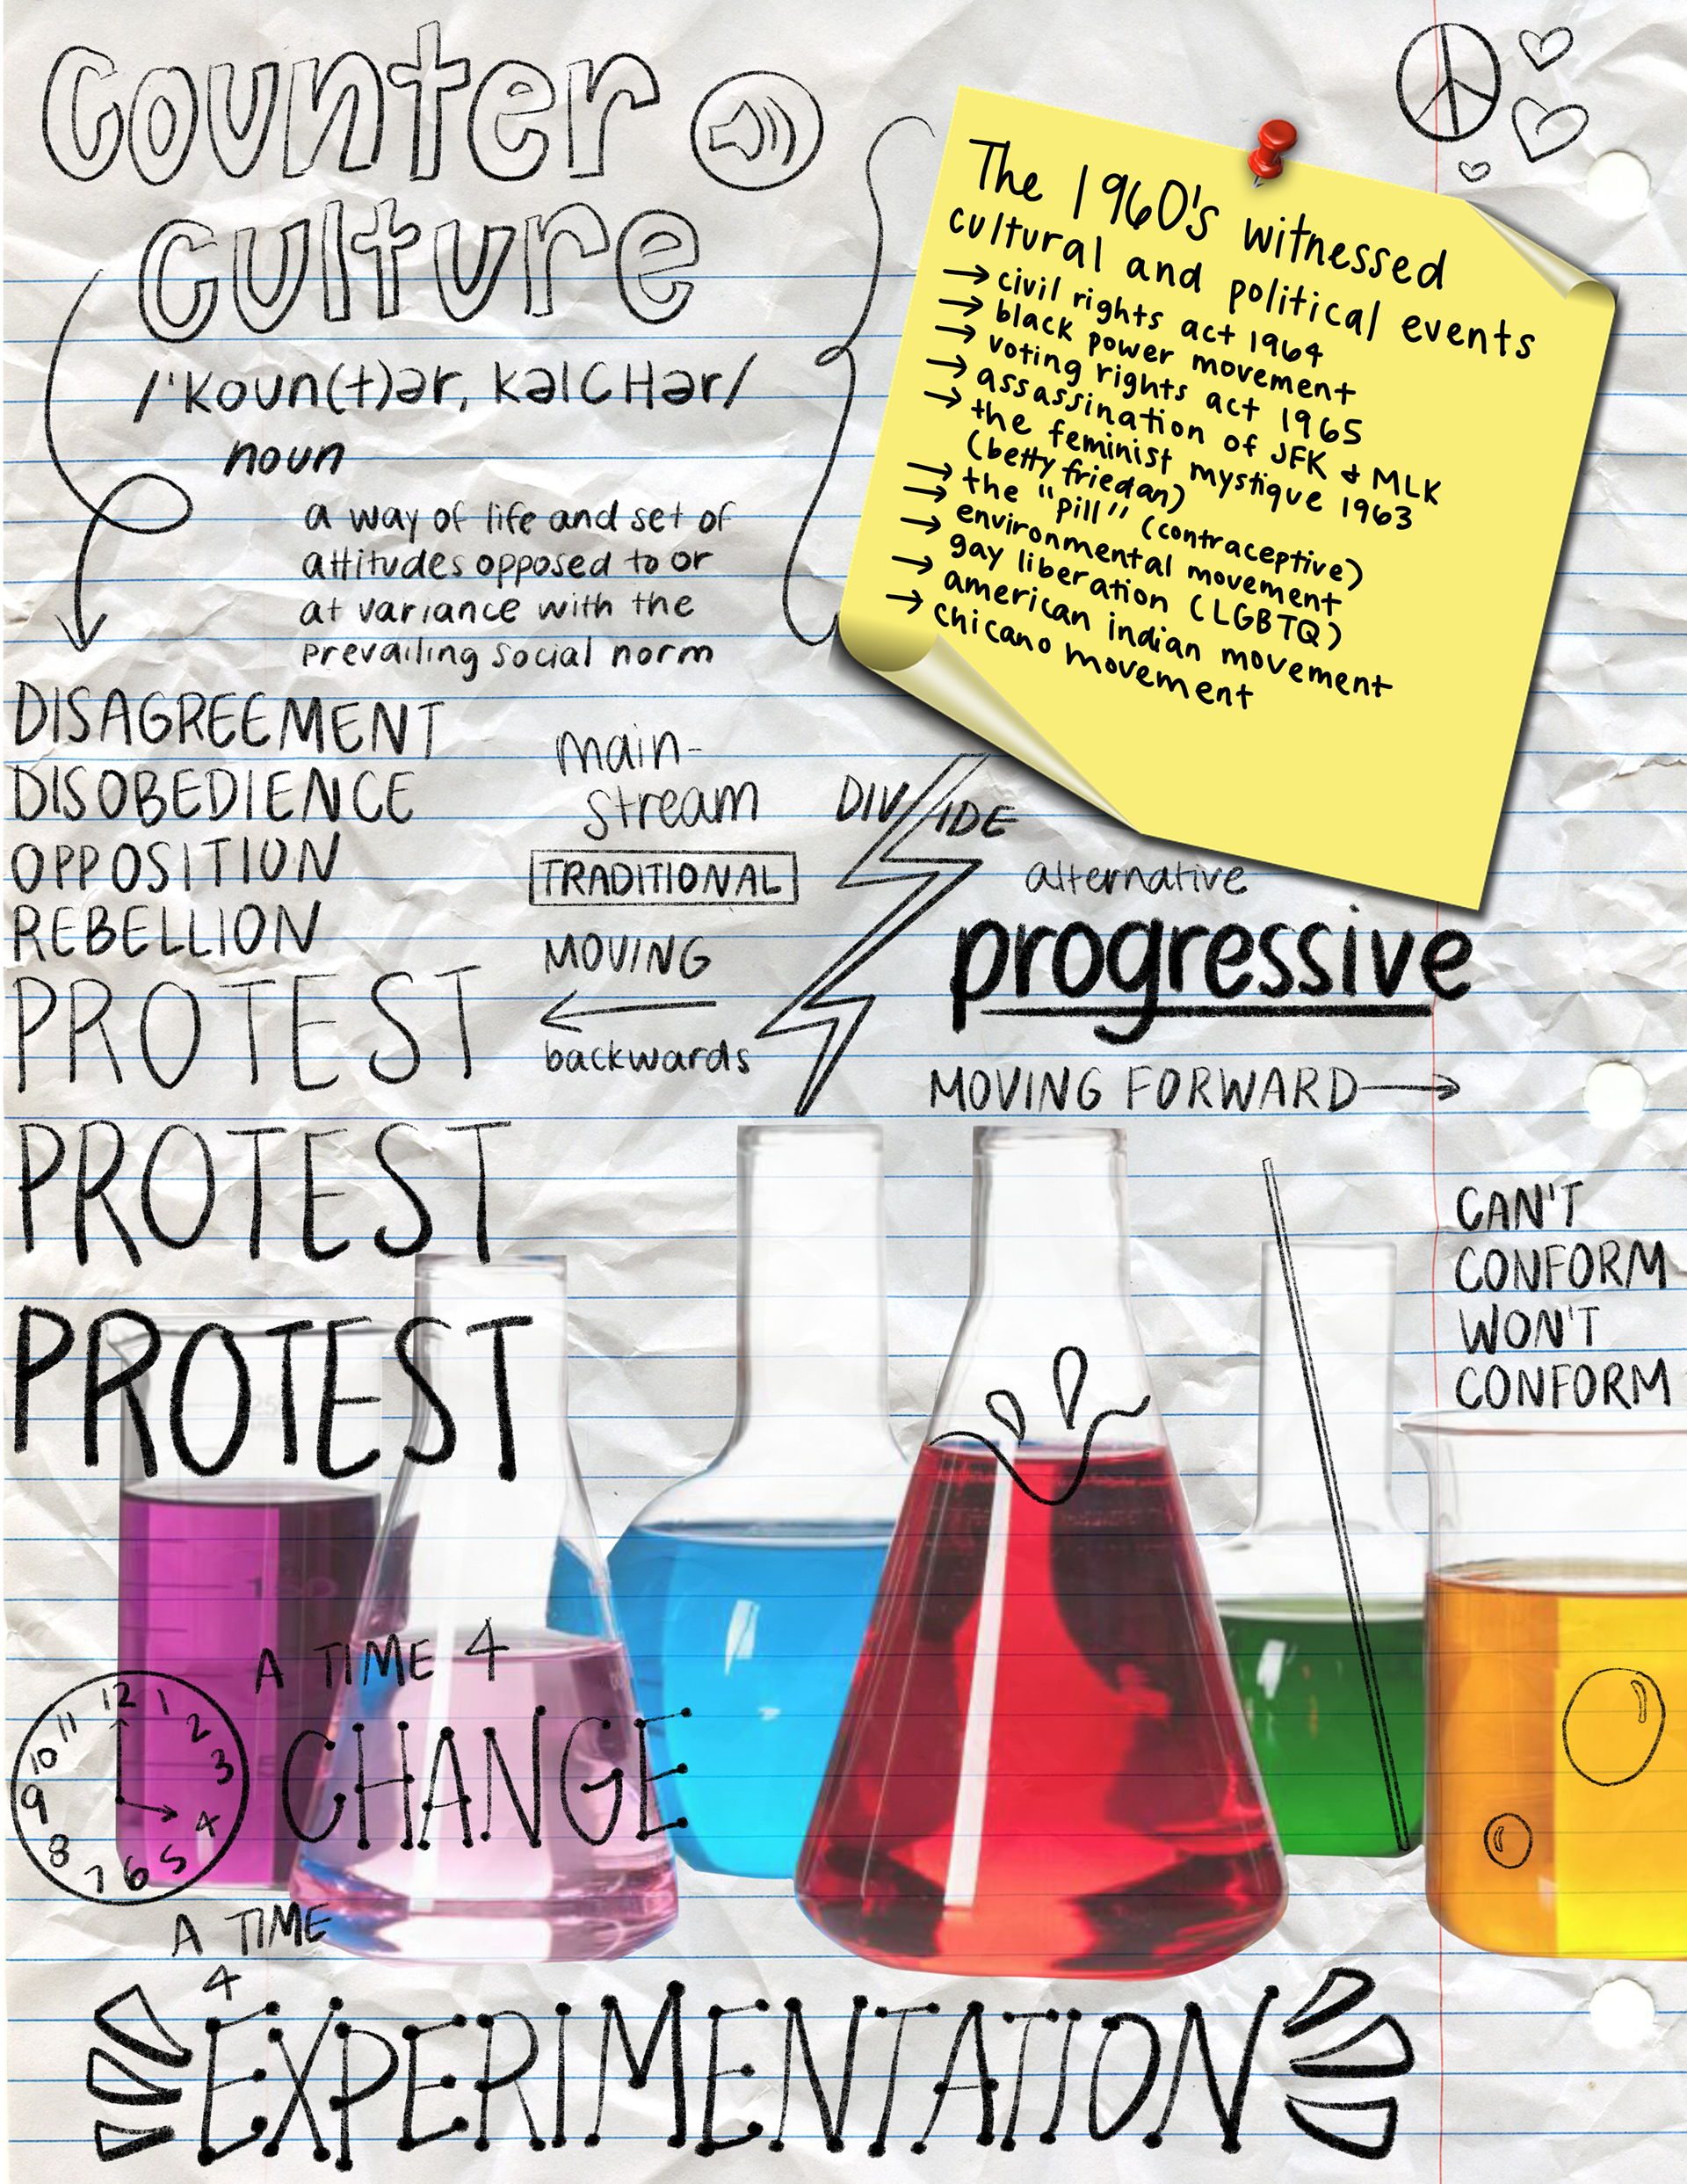 counter
culture
/'koun(t)ər, kəlCHər/
noun
a way of life and set of
attitudes opposed to or
at variance with the
prevailing social norm
The 1960's witnessed
cultural and political events
→ civil rights act 1964
→ black power movement
→ voting rights act 1965
→ assassination of JFK & MLK
→ the feminist mystique 1963
(betty friedan)
→ the "Pill" (contraceptive)
→ environmental movement
→ gay liberation (LGBTQ)
→ american indian movement
→ chicano movement
DISAGREEMENT
DISOBEDIENCE
OPPOSITION
REBELLION
PROTEST
PROTEST
PROTEST
main-
stream
TRADITIONAL
MOVING
←
backwards
DIV IDE
alternative
progressive
MOVING FORWARD →
CAN'T
CONFORM
WON'T
CONFORM
250
150
A TIME 4
CHANGE
12
1
2
3
4
5
6
7
8
9
10
11
A TIME
4
EXPERIMENTATION